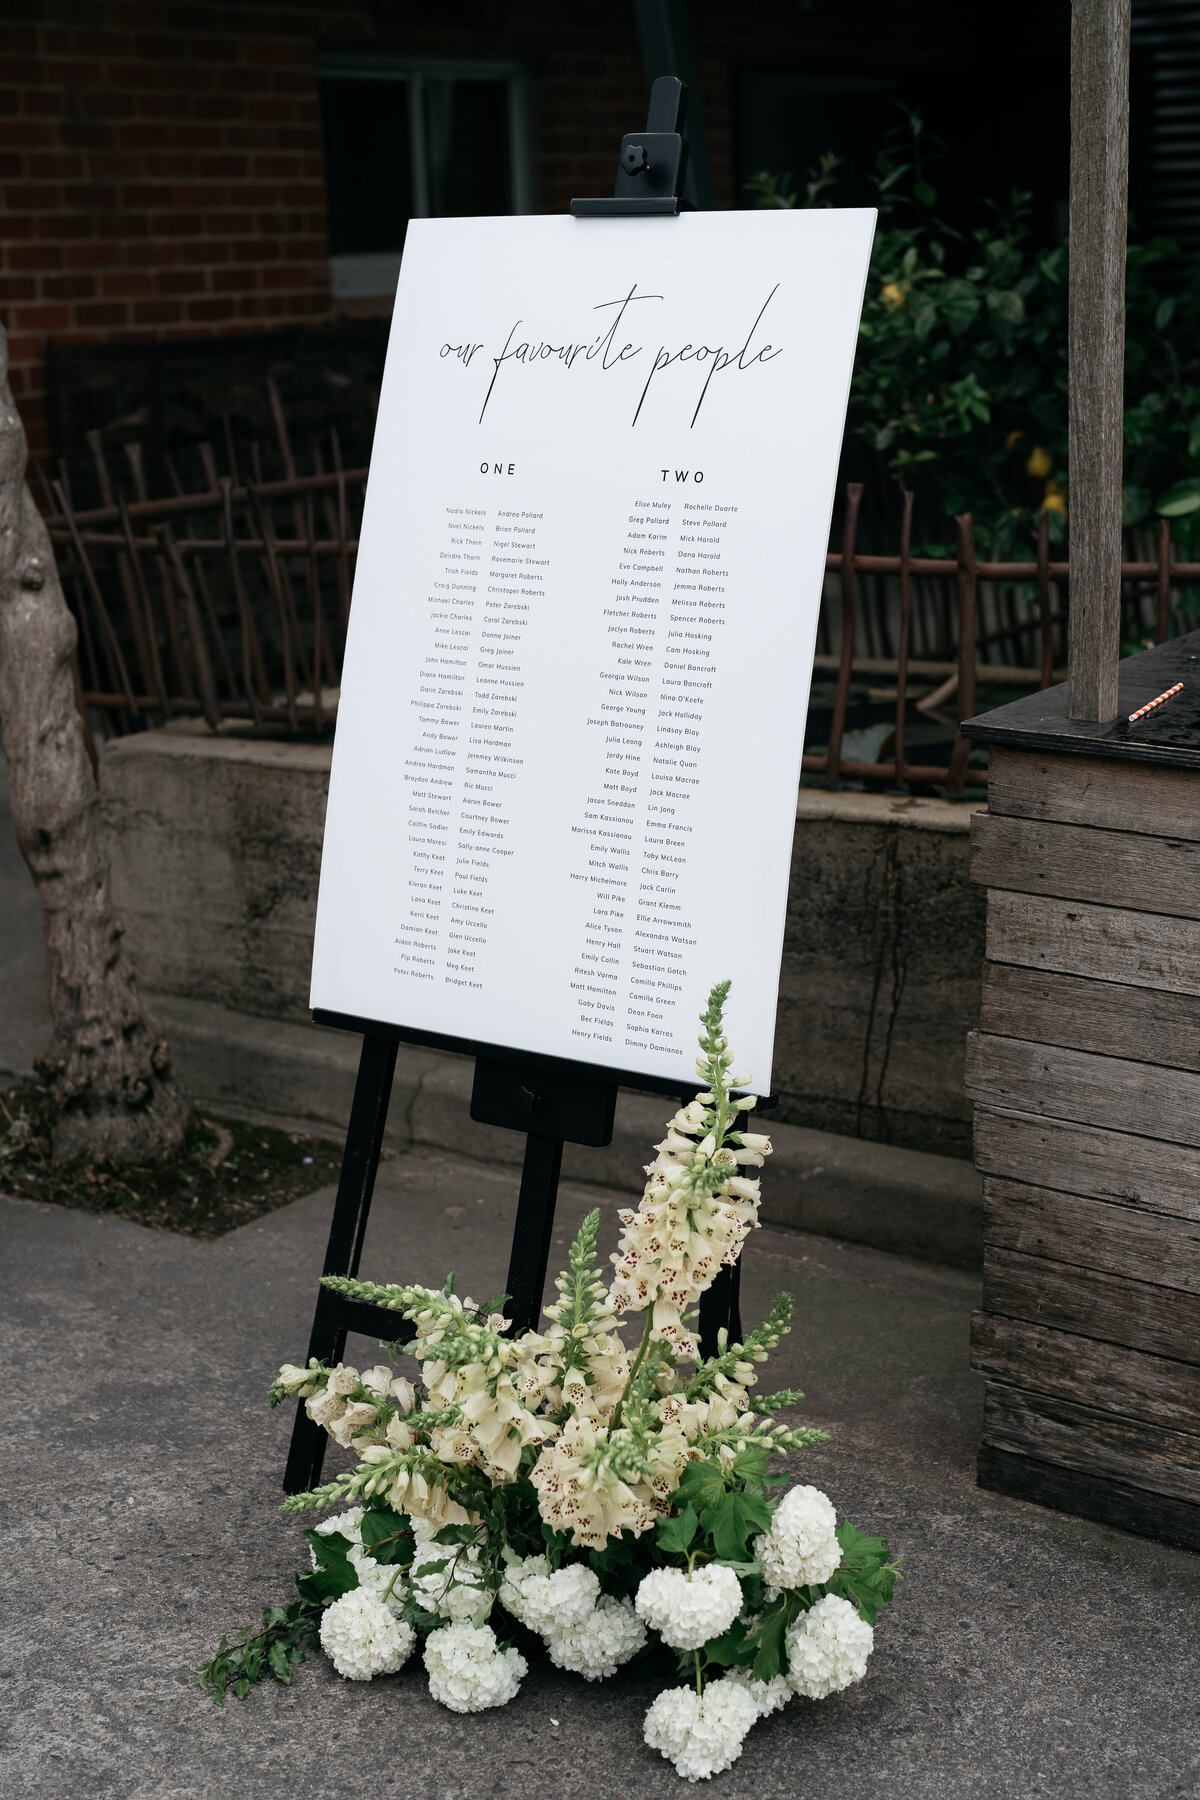 our favourite people
ONE
Nadia Nickels Andrea Pollard
Noel Nickels Brian Pollard
Rick Thorn Nigel Stewart
Deirdre Thorn Rosemarie Stewart
Trish Fields Margaret Roberts
Craig Dunning Christoper Roberts
Michael Charles Peter Zarebski
Jackie Charles Coral Zarebski
Anne Lescai Donna Joiner
Mike Lescai Greg Joiner
John Hamilton Omar Hussien
Diane Hamilton Leanne Hussien
Darin Zarebski Todd Zarebski
Philippa Zarebski Emily Zarebski
Tammy Bower Lauren Martin
Andy Bower Lisa Hardman
Adrian Ludlow Jeremey Wilkinson
Andrea Hardman Samantha Mucci
Braydon Andrew Ric Mucci
Matt Stewart Aaron Bower
Sarah Belcher Courtney Bower
Caitlin Sadler Emily Edwards
Laura Moresi Sally-anne Cooper
Kathy Keet Julie Fields
Terry Keet Paul Fields
Kieran Keet Luke Keet
Lana Keet Christine Keet
Kerri Keet Amy Uccello
Damian Keet Glen Uccello
Aidan Roberts Jake Keet
Pip Roberts Meg Keet
Peter Roberts Bridget Keet
TWO
Elise Muley Rochelle Duarte
Greg Pollard Steve Pollard
Adam Karim Mick Harold
Nick Roberts Dana Harold
Eve Campbell Nathan Roberts
Holly Anderson Jemma Roberts
Josh Prudden Melissa Roberts
Fletcher Roberts Spencer Roberts
Jaclyn Roberts Julia Hosking
Rachel Wren Cam Hosking
Kale Wren Daniel Bancroft
Georgia Wilson Laura Bancroft
Nick Wilson Nina O'Keefe
George Young Jack Halliday
Joseph Batrouney Lindsay Blay
Julia Leong Ashleigh Blay
Jordy Hine Natalie Quan
Kate Boyd Louisa Macrae
Matt Boyd Jack Macrae
Jason Sneddon Lin Jong
Sam Kassianou Emma Francis
Marissa Kassianou Laura Breen
Emily Wallis Toby McLean
Mitch Wallis Chris Barry
Harry Michelmore Jack Carlin
Will Pike Grant Klemm
Lara Pike Ellie Arrowsmith
Alice Tyson Alexandra Watson
Henry Hall Stuart Watson
Emily Collin Sebastian Gotch
Ritesh Varma Camilla Phillips
Matt Hamilton Camille Green
Gaby Davis Dean Foon
Bec Fields Sophia Karras
Henry Fields Dimmy Damianos